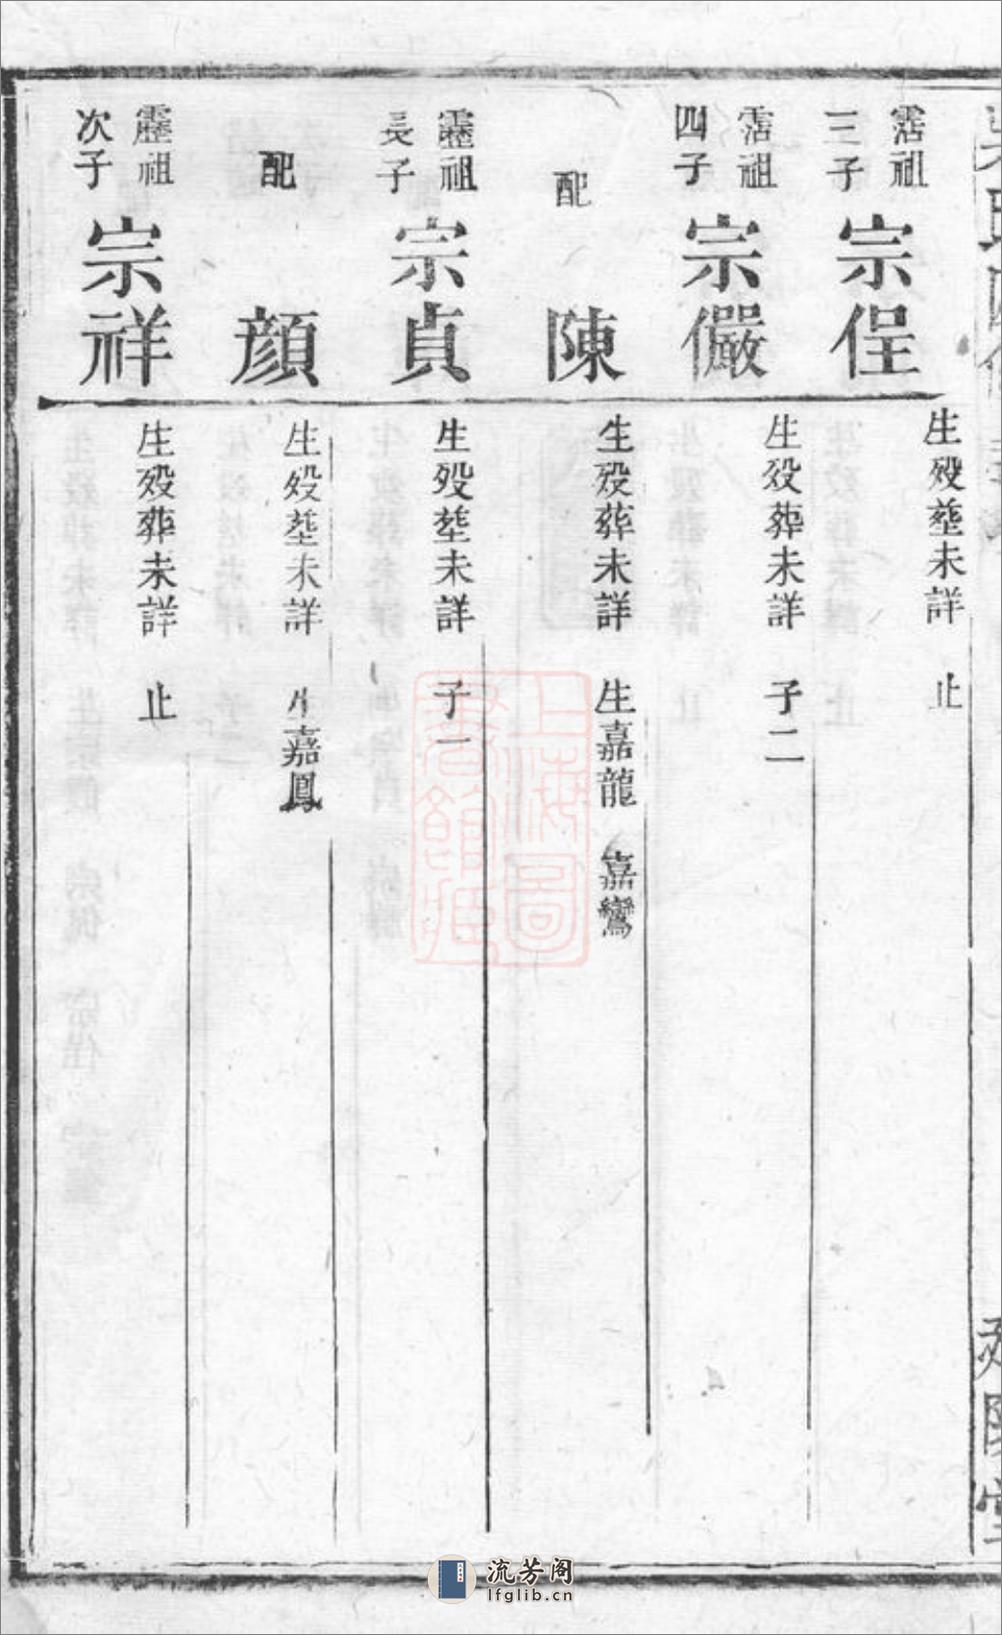 霑祖
三子
宗侱
生殁塟未詳　止
霑祖
四子
宗儼
生殁葬未詳　子二
配
陳
生殁葬未詳　生嘉龍　嘉鸞
長子
宗貞
生殁塟未詳　子一
配
顔
生殁塟未詳　生嘉鳳
次子
宗祥
生殁葬未詳　止
上海图
书馆
流芳阁
lfglib.cn